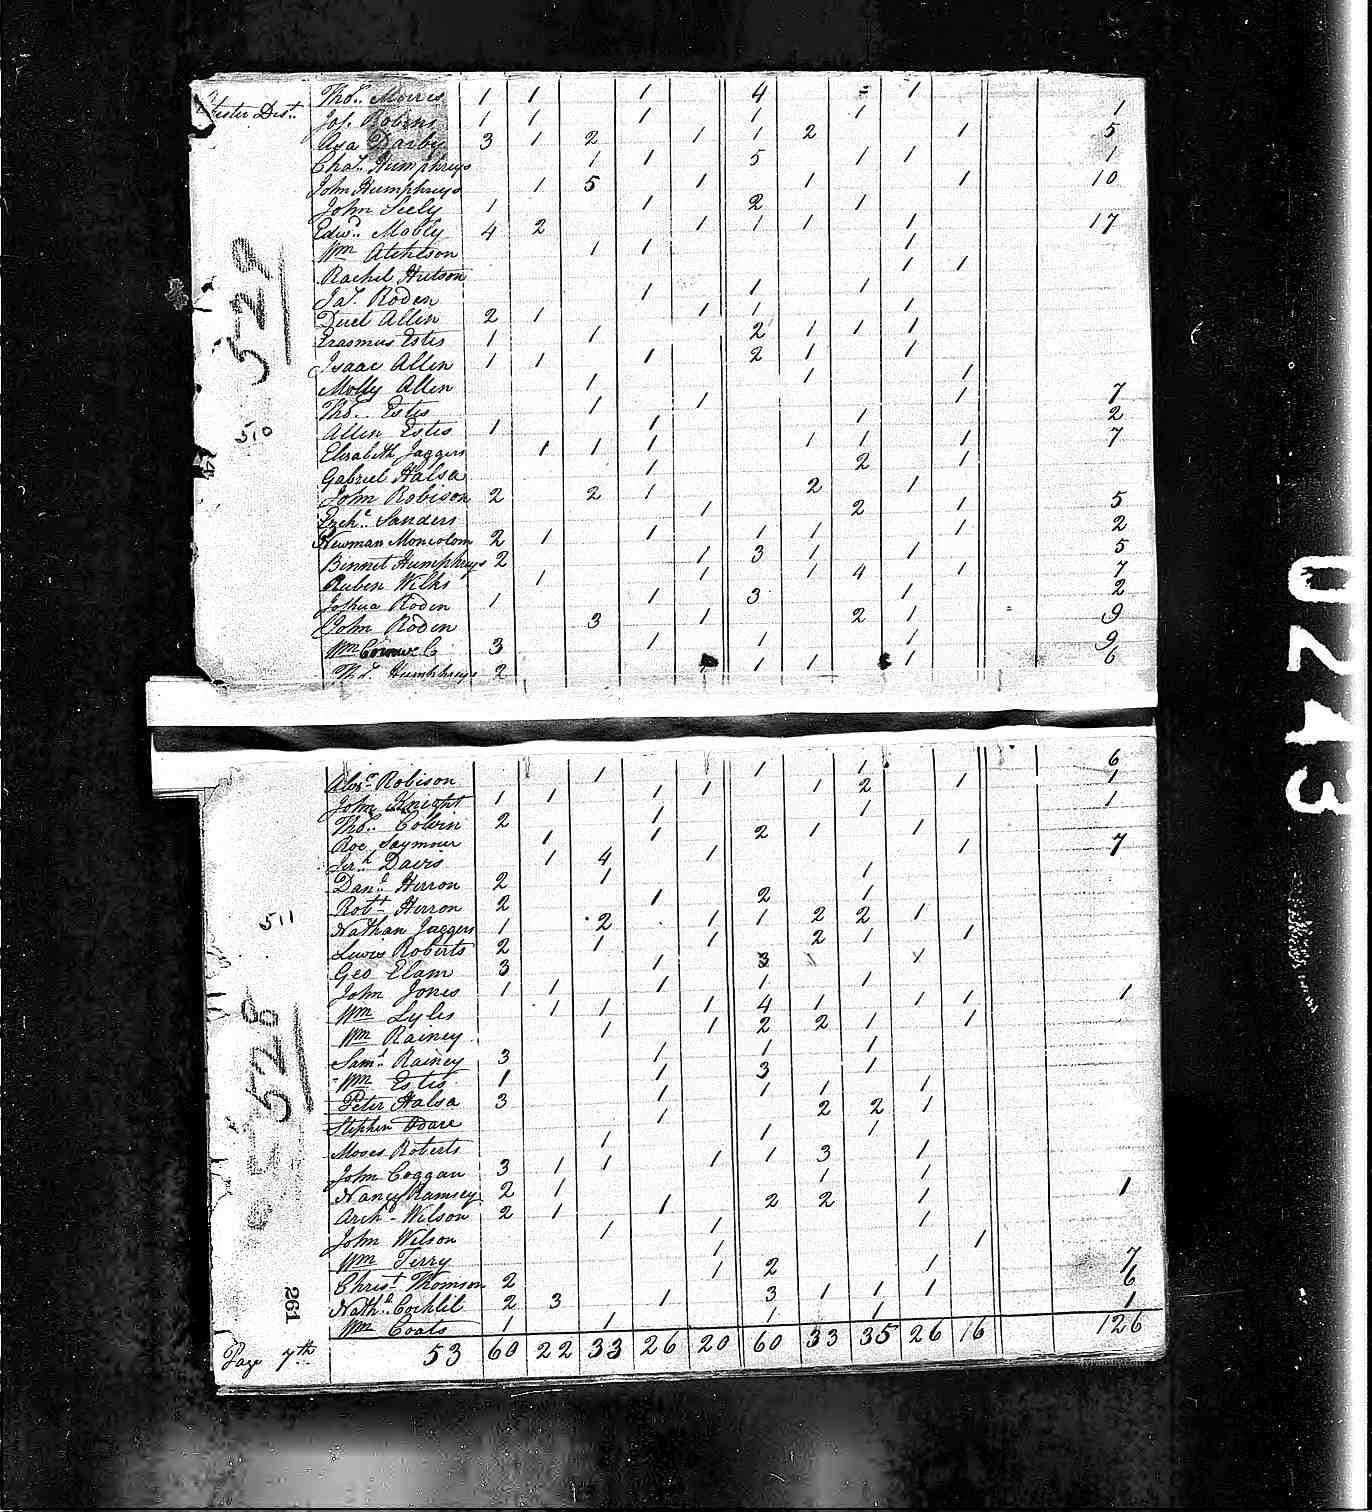 Chester Dist.
Thos. Morris 1 1 1 4 = 1
Jos. Robens 1 1 1 1 1 1
Asa Darby 3 1 2 1 1 2 1 5
Chas. Humphreys 1 1 5 1 1 1
John Humphreys 1 5 1 1 1 10
John Seely 1 1 2 1
Edwd. Mobly 4 2 1 1 1 1 17
Wm Atchison 1 1 1
Rachel Hutson 1 1
Jas. Roden 1 1 1
Duet Allen 2 1 1 1 1
Erasmus Estis 1 1 2 1 1 1
Isaac Allen 1 1 1 2 1 1
Molly Allen 1 1 1
Thos. Estis 1 1 1 7
Allen Estis 1 1 1 2
Elisabeth Jaggers 1 1 1 1 1 1 7
Gabriel Halsa 1 2 1
John Robison 2 2 1 2 1
Ezche. Sanders 1 2 1 5
Newman Moncolom 2 1 1 1 1 1 2
Binnet Humphreys 2 1 3 1 1 5
Ruben Wilks 1 1 1 4 1 7
Joshua Roden 1 1 3 1 2
John Roden 3 1 2 1 9
Wm 3 1 1 1 9
Thos. Humphreys 2 1 1 1 6
529
510
Robison 1 1 1 6
John Knight 1 1 1 1 1 2 1 1
Thos. Colvin 2 1 1 1
Roe Saymour 1 1 2 1 1
Jerh. Davis 1 4 1 1 7
Danl. Herron 2 1 1
Robt. Herron 2 1 2 1
Nathan Jaggers 1 2 1 1 2 2 1
Lewis Roberts 2 1 1 2 1 1
Geo Elam 3 1 3 1
John Jones 1 1 1 1 1
Wm Lyles 1 1 1 4 1 1 1 1
Wm Rainey 1 1 2 2 1 1
Saml. Rainey 3 1 1 1
Wm Estis 1 1 3 1
Peter Halsa 3 1 1 1 1
Stephen Odare 1 2 2 1
Moses Roberts 1 1 1
John Coggan 3 1 1 1 1 3 1
Nancy Ramsey 2 1 1 1
Archd. Wilson 2 1 1 2 2 1 1
John Wilson 1 1 1
Wm Terry 1 1
Christ. Thomson 2 1 2 1 7
Nathl. Cochlil 2 3 1 3 1 1 1 6
Wm Coats 1 1 1 1 1
Page 7th. 53 60 22 33 26 20 60 33 35 26 16 126
511
528
261
0243